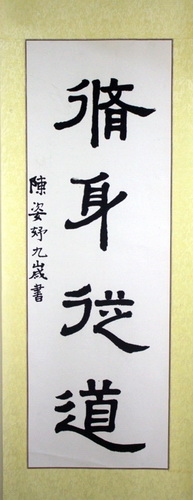 脩身從道
陳姿妤九歲書